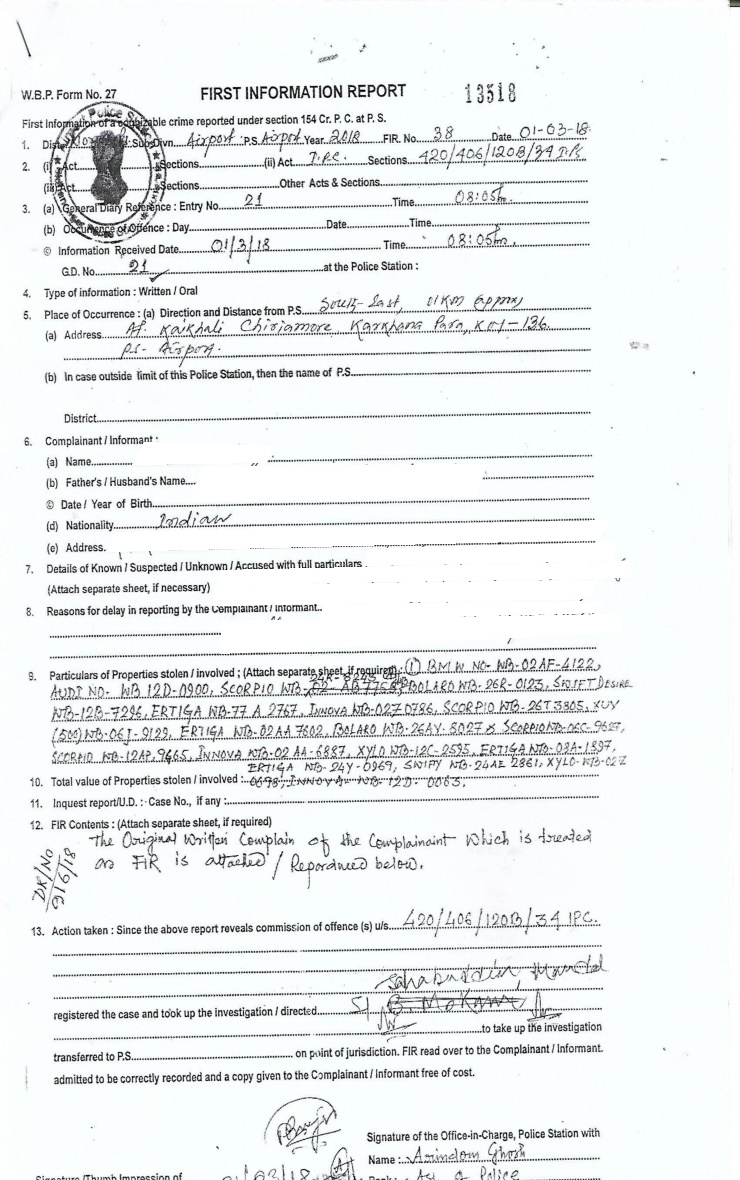 W.B.P. Form No. 27 FIRST INFORMATION REPORT 13518
First Information of a cognizable crime reported under section 154 Cr. P. C. at P. S.
1. Dist. Sub Divn. Airport P.S. Airport Year 2018 FIR. No. 38 Date 01-03-18
2. (i) Act Sections (ii) Act I.P.C. Sections 420/406/120B/34
(iii) Act Sections Other Acts & Sections
3. (a) General Diary Reference : Entry No. 21 Time 08:05
(b) Occurrence of Offence : Day Date Time
© Information Received Date 01/3/18 Time 08:05
G.D. No. 21 at the Police Station :
4. Type of information : Written / Oral
5. Place of Occurrence : (a) Direction and Distance from P.S. South-East, 01KM
(a) Address At Kaikhali Chiriamore, Karkhana Para, Kol-136
P.S- Airport.
(b) In case outside limit of this Police Station, then the name of P.S.
District
6. Complainant / Informant :
(a) Name
(b) Father's / Husband's Name
© Date / Year of Birth
(d) Nationality Indian
(e) Address.
7. Details of Known / Suspected / Unknown / Accused with full particulars
(Attach separate sheet, if necessary)
8. Reasons for delay in reporting by the Complainant / Informant..
9. Particulars of Properties stolen / involved ; (Attach separate sheet, if required) : (1) BMW NO- WB-02AF-4122,
AUDI NO- WB 12D-0900, SCORPIO WTB- BOLARO WTB-26R-0123, SWIFT DESIRE
WTB-12B-7296, ERTIGA WTB-77 A 2767, INNOVA WTB-02J 0786, SCORPIO WTB-26T3805, XUV
(500) WTB-06J-9129, ERTIGA WTB-02AA 7602, BOLARO WTB-26AY-5027 & SCORPIO
SCORPIO WTB-12AP, 9665, INNOVA WTB-02 AA-6887, XYLO WTB-12C-2595, ERTIGA WTB-08A-1597,
ERTIGA WTB-24Y-0969, SWIFT WTB-24AE 2861, XYLO-WTB-02Z
10. Total value of Properties stolen / involved : 0698, INNOVA- WTB 12D- 0063.
11. Inquest report/U.D. : Case No., if any :
12. FIR Contents : (Attach separate sheet, if required)
The Original Written Complain of the Complainaint Which is treated
as FIR is attached / Repordnced below.
13. Action taken : Since the above report reveals commission of offence (s) u/s. 420/406/120B/34 IPC.
Sahabuddin Mondal
registered the case and took up the investigation / directed SI
to take up the investigation
transferred to P.S. on point of jurisdiction. FIR read over to the Complainant / Informant.
admitted to be correctly recorded and a copy given to the Complainant / Informant free of cost.
Signature of the Office-in-Charge, Police Station with
Name : Arindam Ghosh
Signature /Thumb Impression of 01/03/18 of Police